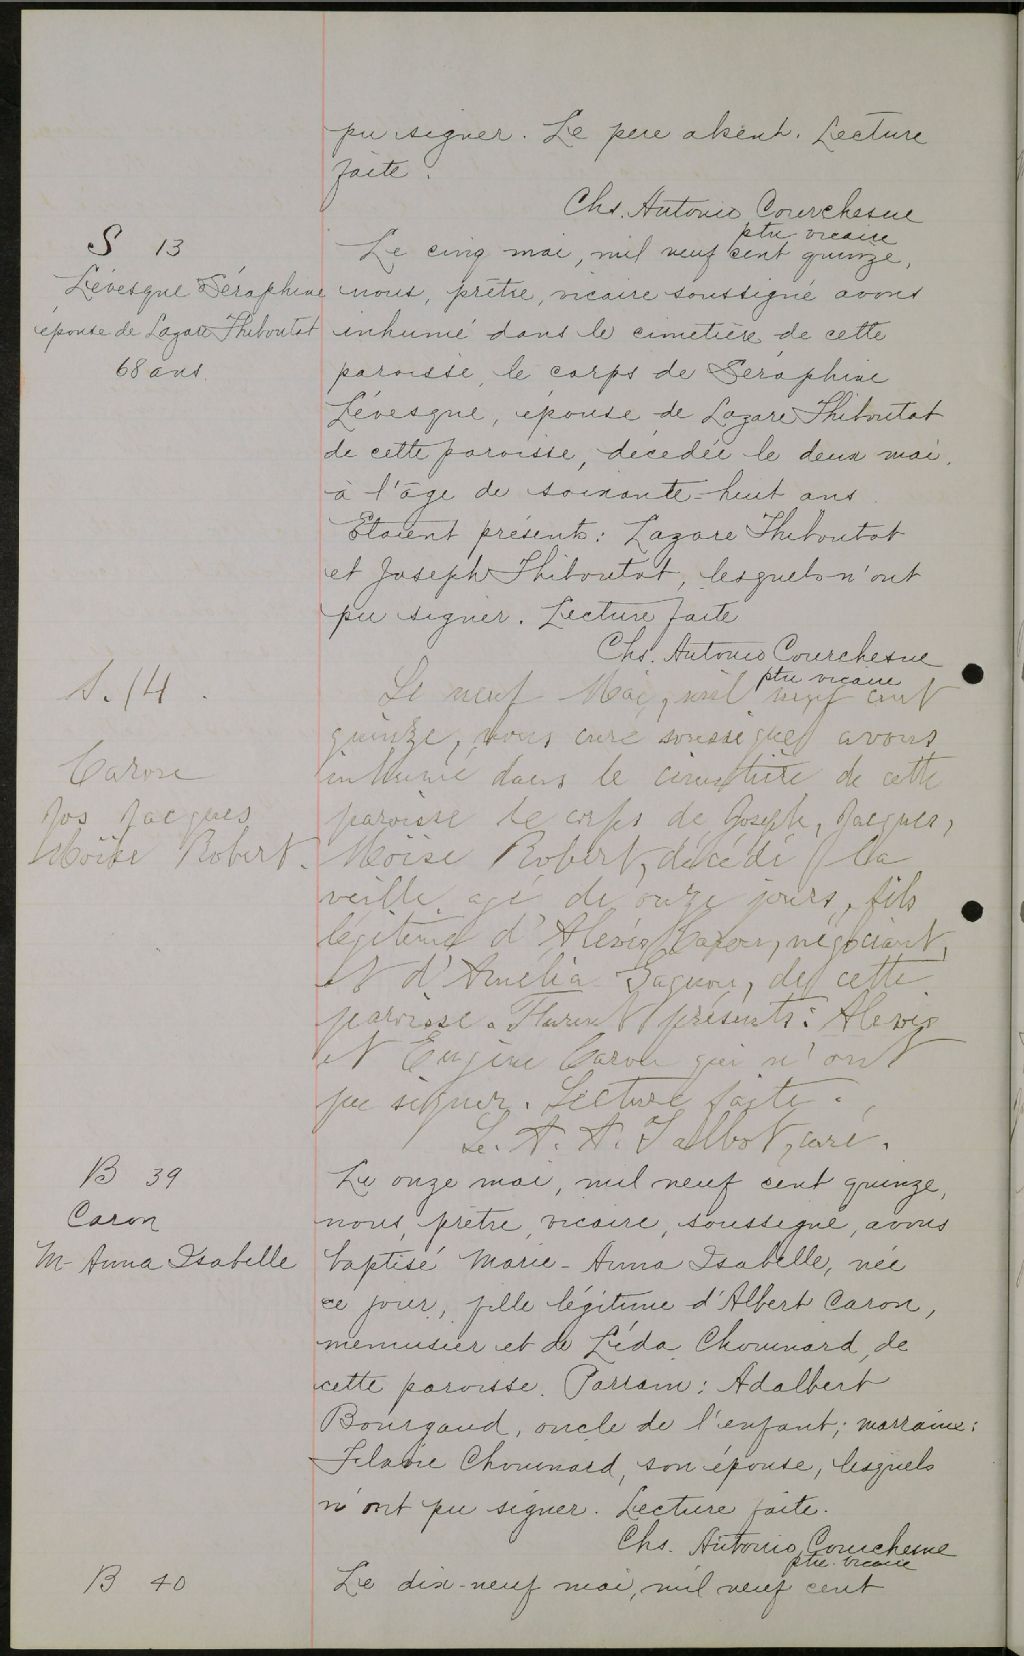 pu signer. Le père absent. Lecture
faite.
Chs. Antonio Courchesne
ptre vicaire
S 13
Lévesque Séraphine
épouse de Lazare Thiboutot
68 ans.
Le cinq mai, mil neuf cent quinze,
nous, prêtre, vicaire soussigné avons
inhumé dans le cimetière de cette
paroisse, le corps de Séraphine
Lévesque, épouse de Lazare Thiboutot
de cette paroisse, décédée le deux mai,
à l'âge de soixante-huit ans.
Etaient présents: Lazare Thiboutot
et Joseph Thiboutot, lesquels n'ont
pu signer. Lecture faite
Chs. Antonio Courchesne
ptre vicaire
S. 14.
Caron
Jos Jacques
Moïse Robert.
Le neuf Mai, mil neuf cent
quinze, nous curé soussigné avons
inhumé dans le cimetière de cette
paroisse le corps de Joseph, Jacques,
Moïse Robert, décédé la
veille, agé de onze jours, fils
légitime d'Alexis Caron, négociant,
et d'Amélia Gagnon, de cette
paroisse. Furent présents: Alexis
et Eugène Caron qui n'ont
pu signer. Lecture faite.
L. A. A. Talbot, curé.
B 39
Caron
M-Anna Isabelle
Le onze mai, mil neuf cent quinze,
nous, prêtre, vicaire, soussigné, avons
baptisé Marie-Anna Isabelle, née
ce jour, fille légitime d'Albert Caron,
menuisier et de Léda Chouinard, de
cette paroisse. Parrain: Adalbert
Bourgaud, oncle de l'enfant; marraine:
Flavie Chouinard, son épouse, lesquels
n'ont pu signer. Lecture faite.
Chs. Antonio Courchesne
ptre vicaire
B 40
Le dix-neuf mai, mil neuf cent